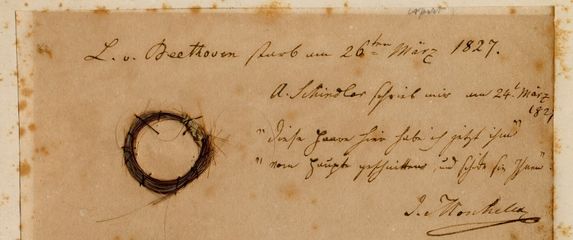 L. v. Beethoven starb am 26ten März 1827.
A. Schindler schrieb mir am 24t März
1827
"diese Haare hier habe ich jetzt ihm
"vom Haupte geschnitten, und
I. Moscheles